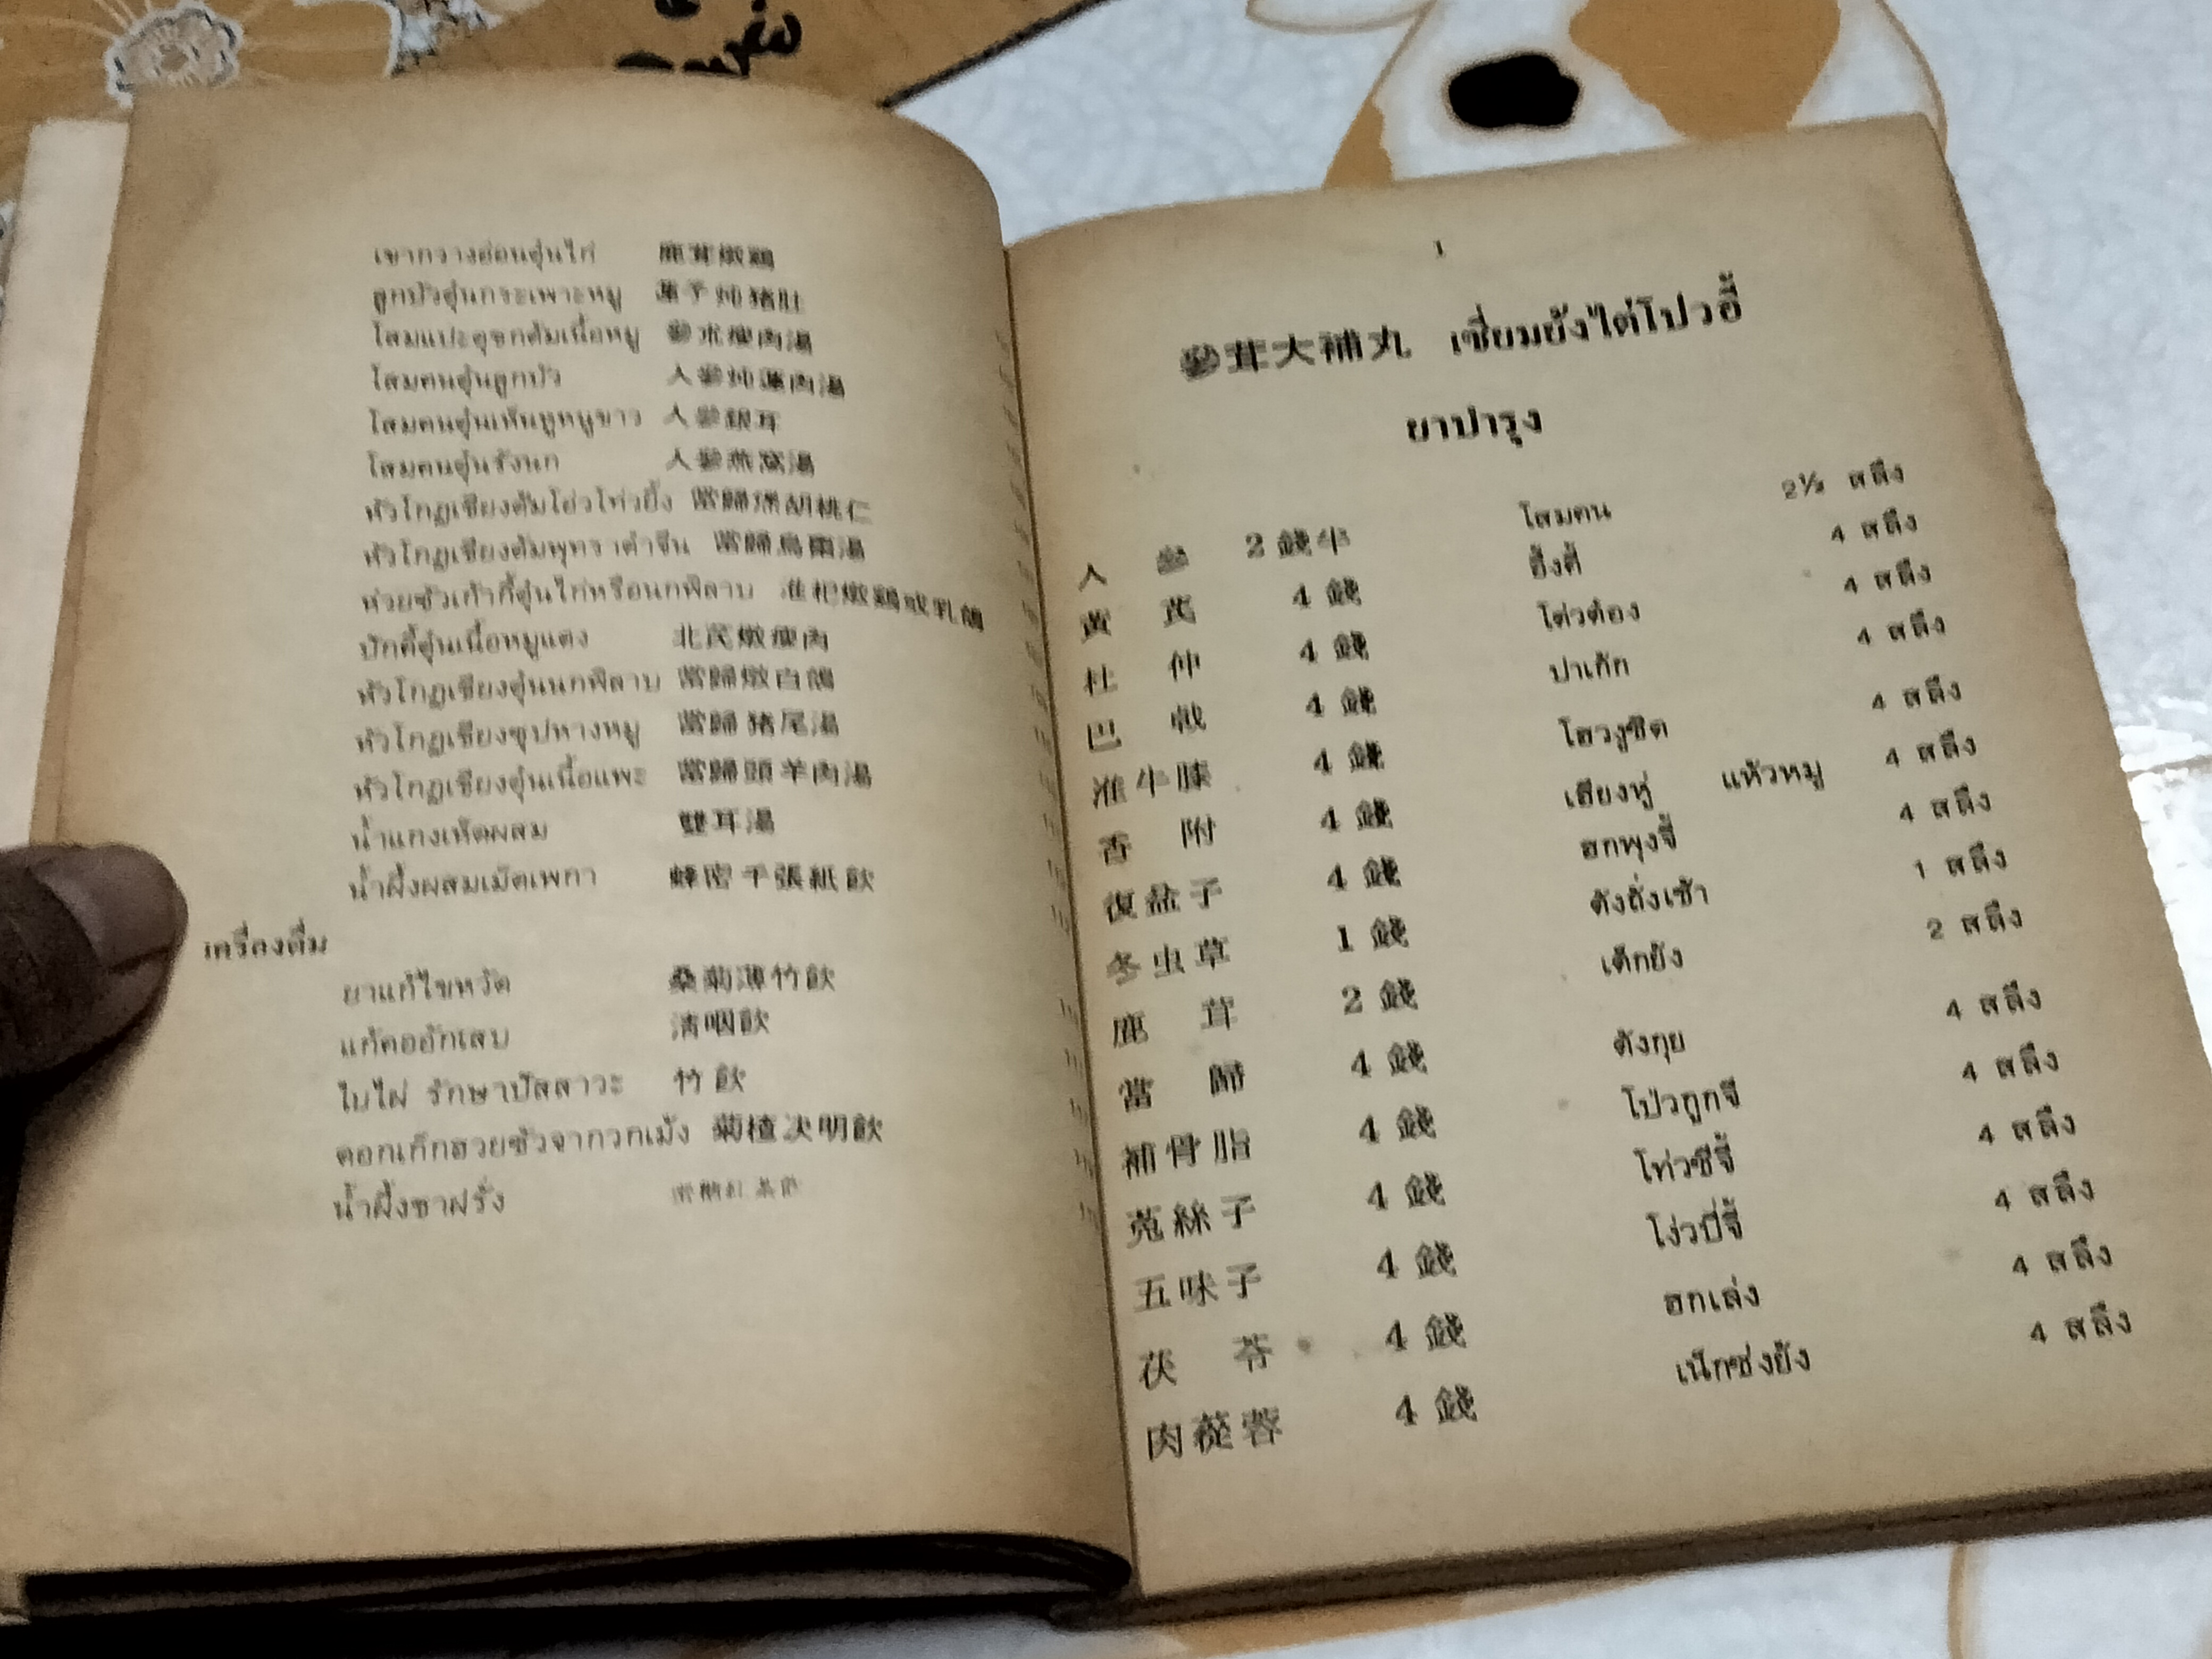 เขากวางอ่อนตุ๋นไก่ 鹿茸燉鷄
ลูกบัวตุ๋นกระเพาะหมู 蓮子炖猪肚
โสมแปะตุชกต้มเนื้อหมู 參朮瘦肉湯
โสมคนตุ๋นลูกบัว 人參炖蓮肉湯
โสมคนตุ๋นเห็นหูหนูขาว 人參銀耳
โสมคนตุ๋นรังนก 人參燕窩湯
หัวโกฏเชียงต้มโอ่วโท่วยิ้ง 當歸 胡桃仁
หัวโกฏเชียงต้มพุทราดำจีน 當歸烏棗湯
ห่วยซัวเก๋ากี้ตุ๋นไก่หรือนกพิลาบ 淮杞燉鷄或乳鴿
ปักคี้ตุ๋นเนื้อหมูแดง 北芪燉瘦肉
หัวโกฏเชียงตุ๋นนกพิลาบ 當歸燉白鴿
หัวโกฏเชียงซุปหางหมู 當歸猪尾湯
หัวโกฏเชียงตุ๋นเนื้อแพะ 當歸頭羊肉湯
น้ำแกงเห็ดผสม 雙耳湯
น้ำผึ้งผสมเม็ดเพกา 蜂密千張紙飲
เครื่องดื่ม
ยาแก้ไขหวัด 桑菊薄竹飲
แก้คออักเสบ 清咽飲
ใบไผ่ รักษาปัสสาวะ 竹飲
ดอกเก๊กฮวยซัวจากวกเม้ง 菊楂决明飲
น้ำผึ้งชาฝรั่ง
1
參茸大補丸 เซี่ยมยังไต่โปวอี้
ยาบำรุง
人參 2錢半 โสมคน 2½ สลึง
黃芪 4錢 อึ้งคี้ 4 สลึง
杜仲 4錢 โต่วต๋อง 4 สลึง
巴戟 4錢 ปาเก๊ก 4 สลึง
淮牛膝 4錢 โฮวงูชิด 4 สลึง
香附 4錢 เฮียงหู่ แห้วหมู 4 สลึง
復盆子 4錢 ฮกพุงจี้ 4 สลึง
冬虫草 1錢 ตังถั่งเช้า 1 สลึง
鹿茸 2錢 เต็กยัง 2 สลึง
當歸 4錢 ตังกุย 4 สลึง
補骨脂 4錢 โป่วกูกจี 4 สลึง
菟絲子 4錢 โท่วซีจี้ 4 สลึง
五味子 4錢 โง่วบี่จี้ 4 สลึง
茯苓 4錢 ฮกเล่ง 4 สลึง
肉蓯蓉 4錢 เน็กซ่งยัง 4 สลึง